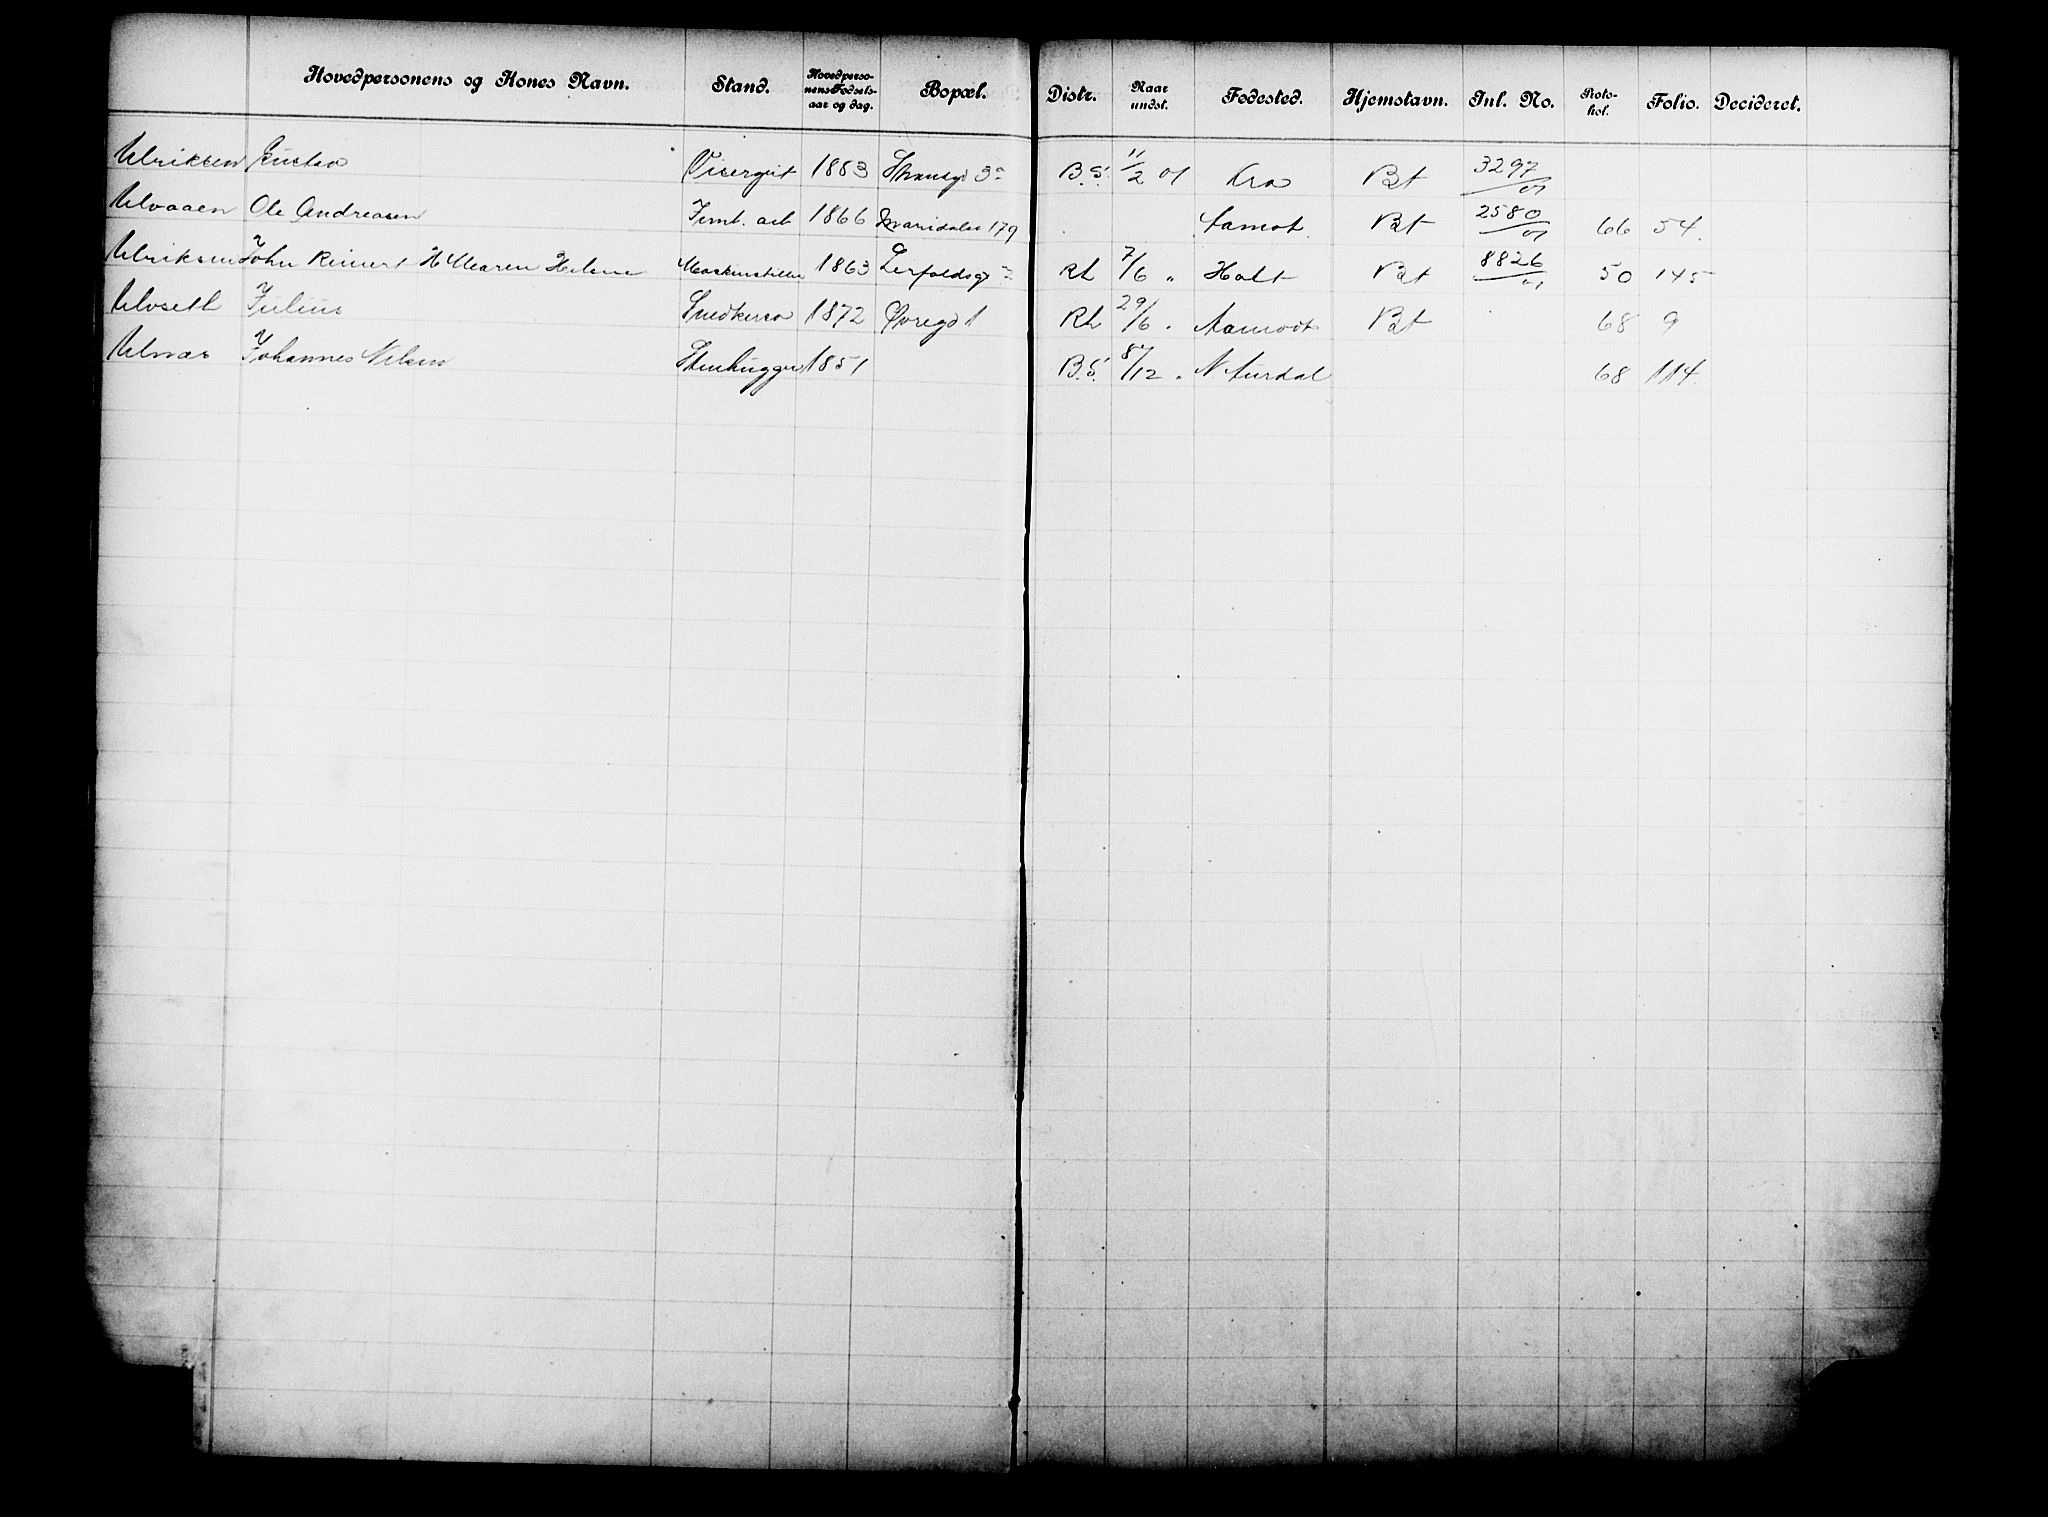 Hovedpersonens og Kones Navn. Stand. Hovedpersonens Fødselsaar og dag. Bopæl. Distr. Naar undst. Fødested. Hjemstavn. Inl. No. Protokol. Folio. Decideret.
Ulriksen Gustav Visergut 1883 3a B.S. 11/2 01 Kra Bt 3297/01
Ulvaaen Ole Andreasen Jernb. arb 1866 Maridalsv 179 Aamot. Bt 2580/01 66 54.
Ulriksen John Reinert H Maren Helene Maskinstiller 1863 Rh 7/6 " Holt Bt 8826/01 50 145
Ulvseth Julius 1872 Øvregd 1 Rh 29/6 " Aamodt Bt 68 9
Ulnæs Johannes Nilsen Stenhugger 1851 B.S. /12 " N. Aurdal 68 114.